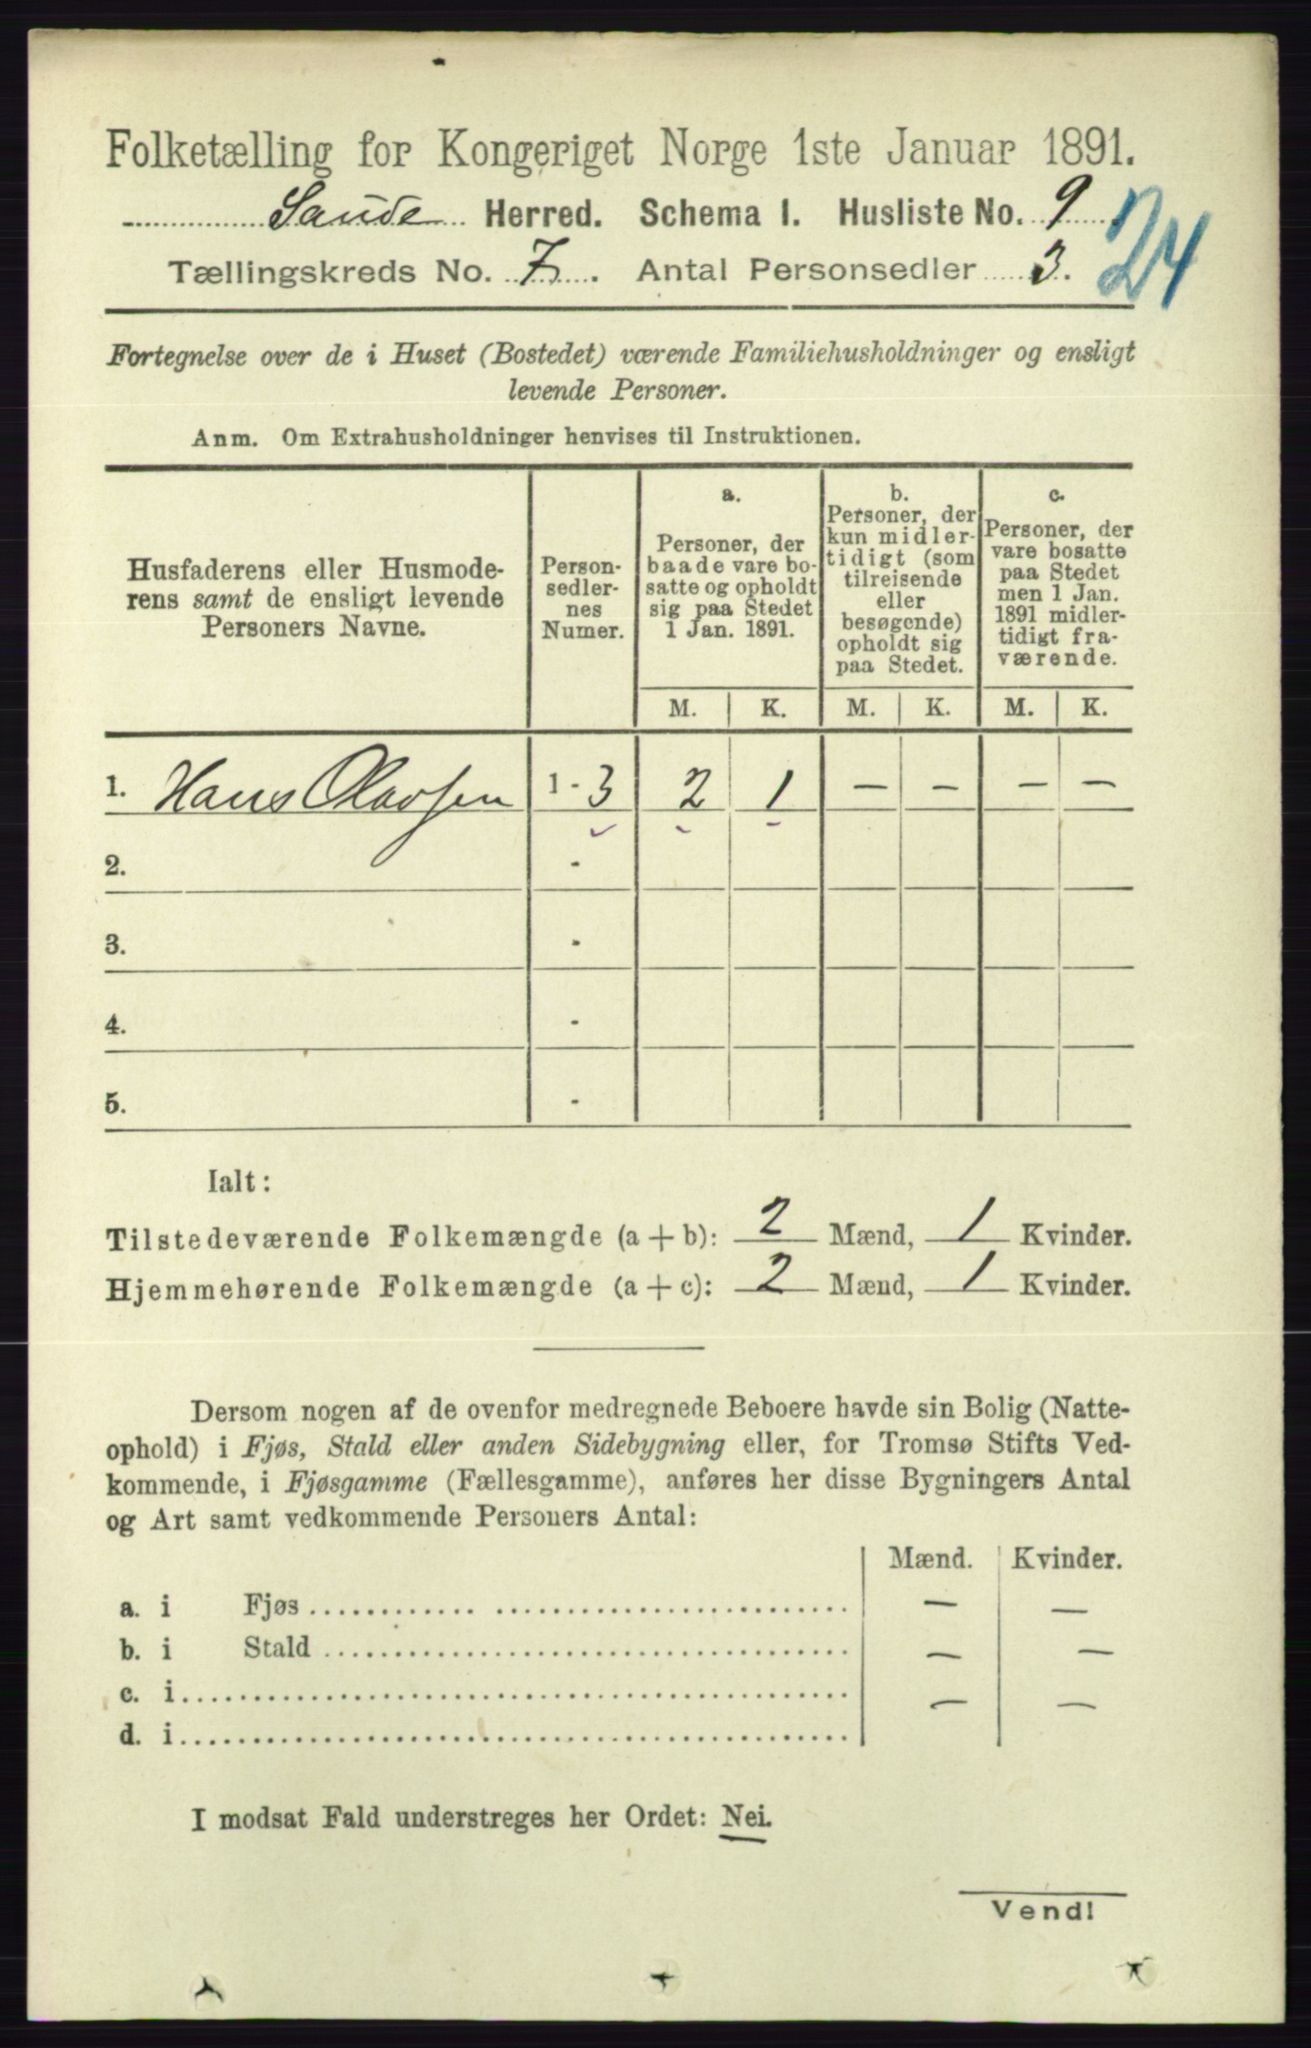 Folketælling for Kongeriget Norge 1ste Januar 1891.
Saude Herred. Schema I. Husliste No. 9
24
Tællingskreds No. 7. Antal Personsedler 3.
Fortegnelse over de i Huset (Bostedet) værende Familiehusholdninger og ensligt
levende Personer.
Anm. Om Extrahusholdninger henvises til Instruktionen.
Husfaderens eller Husmode-
rens samt de ensligt levende
Personers Navne.
Person-
sedler-
nes
Numer.
a.
Personer, der
baade vare bo-
satte og opholdt
sig paa Stedet
1 Jan. 1891.
b.
Personer, der
kun midler-
tidigt (som
tilreisende
eller
besøgende)
opholdt sig
paa Stedet.
c.
Personer, der
vare bosatte
paa Stedet
men 1 Jan.
1891 midler-
tidigt fra-
værende.
M. K. M. K. M. K.
1. Hans Olavsen 1 - 3 2 1 — — — —
2. -
3. -
4. -
5. -
Ialt:
Tilstedeværende Folkemængde (a + b): 2 Mænd, 1 Kvinder.
Hjemmehørende Folkemængde (a + c): 2 Mænd, 1 Kvinder.
Dersom nogen af de ovenfor medregnede Beboere havde sin Bolig (Natte-
ophold) i Fjøs, Stald eller anden Sidebygning eller, for Tromsø Stifts Ved-
kommende, i Fjøsgamme (Fællesgamme), anføres her disse Bygningers Antal
og Art samt vedkommende Personers Antal:
Mænd. Kvinder.
a. i Fjøs — —
b. i Stald — —
c. i — —
d. i
I modsat Fald understreges her Ordet: Nei.
Vend!